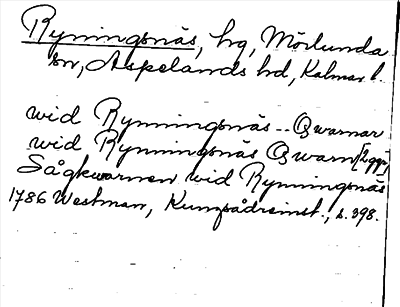 Ryningsnäs, hg, Mörlunda
sn, Aspelands hd, Kalmar l.
wid Rynningsnäs -- Qwarnar
wid Rynningsnäs Qwarn [2 ggr]
Sågkwarnen wid Rynningsnäs
1786 Westman, Kungsådreinst., s. 398.